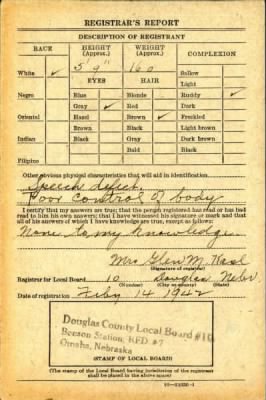 REGISTRAR'S REPORT
DESCRIPTION OF REGISTRANT
RACE HEIGHT (Approx.) WEIGHT (Approx.) COMPLEXION
5' 9" 160
White ✓ Sallow
EYES HAIR Light
Negro Blue Blonde Ruddy ✓
Gray ✓ Red Dark
Oriental Hazel Brown ✓ Freckled
Brown Black Light brown
Indian Black Gray Dark brown
Bald Black
Filipino
Other obvious physical characteristics that will aid in identification
Speech defect.
Poor control of body
I certify that my answers are true; that the person registered has read or has had
read to him his own answers; that I have witnessed his signature or mark and that
all of his answers of which I have knowledge are true, except as follows:
None to my knowledge.
Mrs. Glen M.
(Signature of registrar)
Registrar for Local Board 10 Douglas Nebr
(Number) (City or county) (State)
Date of registration Feby 14 1942
Douglas County Local Board #10
Benson Station, RFD #7
Omaha, Nebraska
(STAMP OF LOCAL BOARD)
(The stamp of the Local Board having jurisdiction of the registrant
shall be placed in the above space)